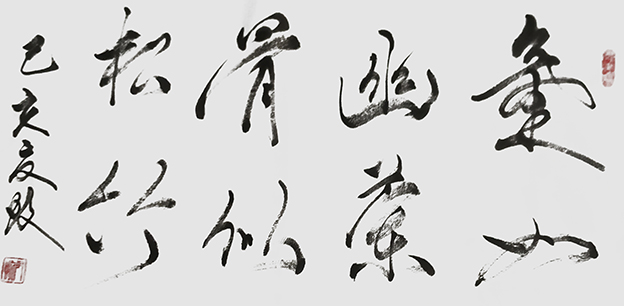 氣如
幽蘭
骨似
松竹
己亥夏